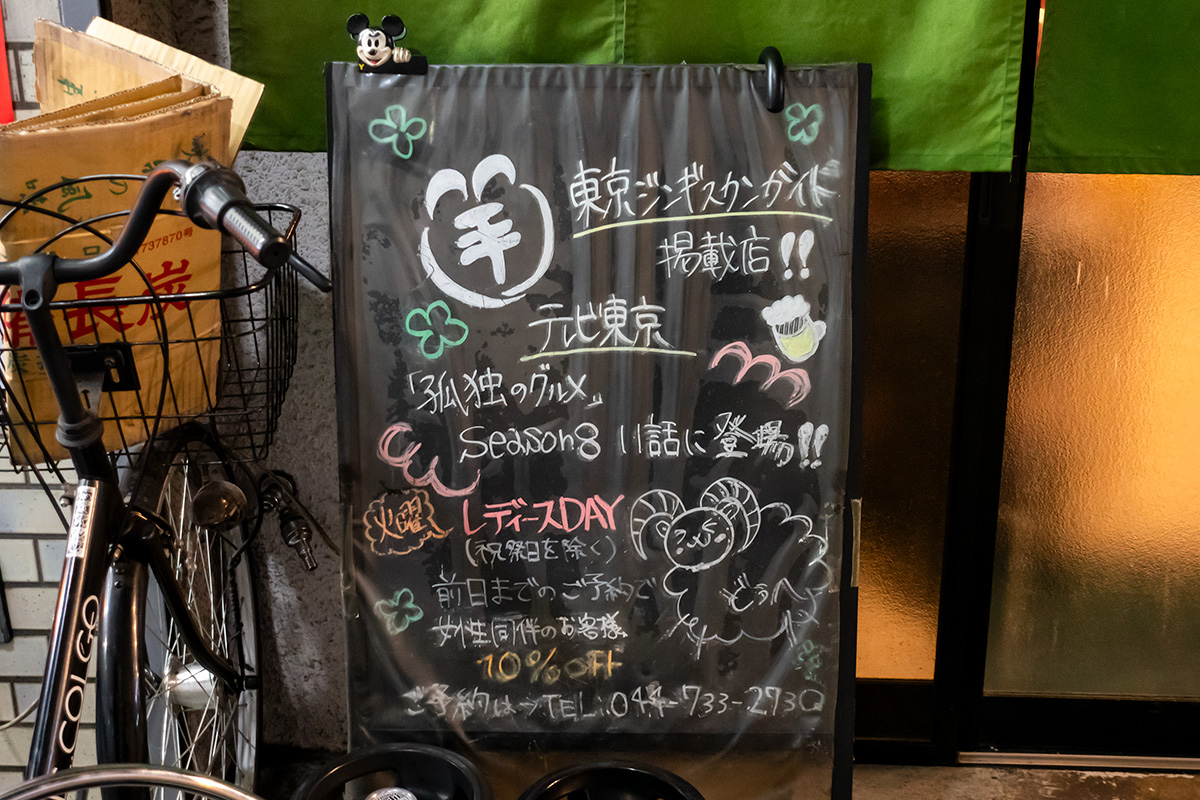 羊
東京ジンギスカンガイド
掲載店!!
テレビ東京
「孤独のグルメ」
Season8 11話に登場!!
火曜 レディースDAY
(祝祭日を除く)
前日までのご予約で
女性同伴のお客様
10%OFF
ご予約は→TEL:044-733-2730
737870号
備長炭
COLOG